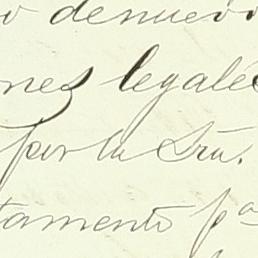 o denuevo
nes legale
por la Sra.
tamento pa